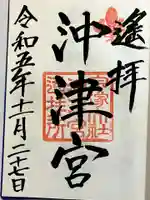 遙拝
沖津宮
令和五年十一月二十七日